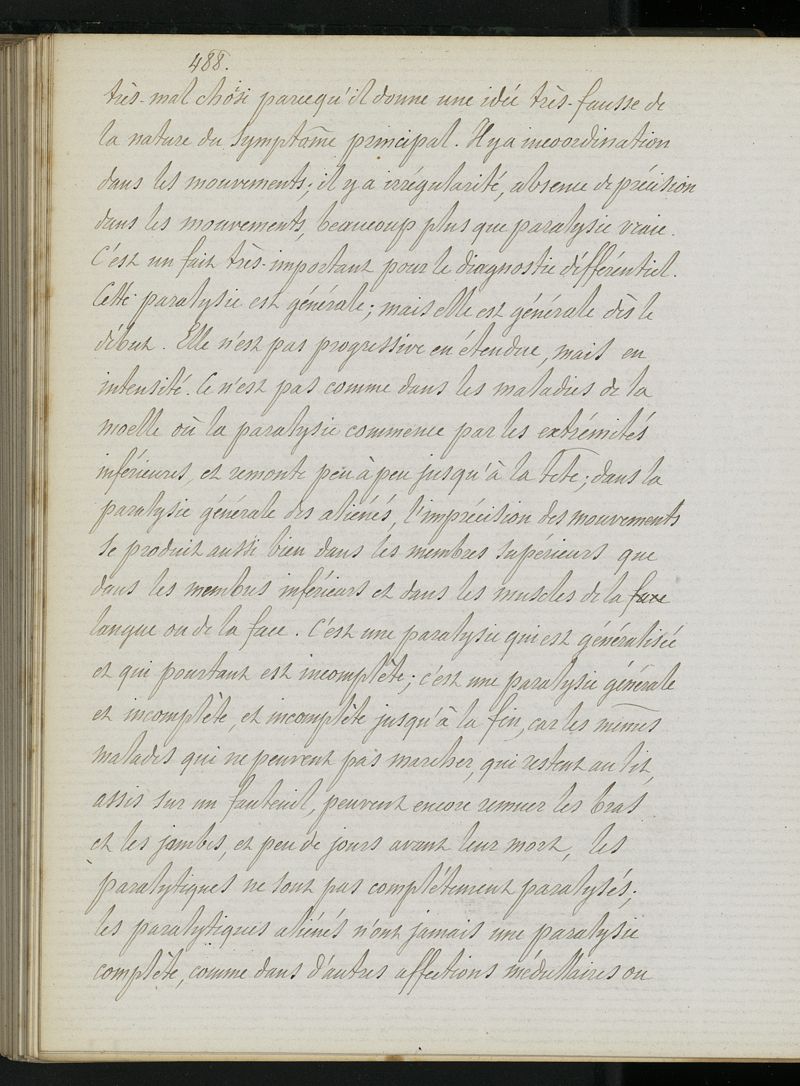 488.
très-mal choisi parcequ'il donne une idée très-fausse de
la nature du symptôme principal. Il y a incoordination
dans les mouvements; il y a irrégularité, absence de précision
dans les mouvements, beaucoup plus que paralysie vraie.
C'est un fait très-important pour le diagnostic différentiel.
Cette paralysie est générale; mais elle est générale dès le
début. Elle n'est pas progressive en étendue, mais en
intensité. Ce n'est pas comme dans les maladies de la
moelle où la paralysie commence par les extrémités
inférieures, et remonte peu à peu jusqu'à la tête; dans la
paralysie générale des aliénés, l'imprécision des mouvements
se produit aussi bien dans les membres supérieurs que
dans les membres inférieurs et dans les muscles de la face
langue ou de la face. C'est une paralysie qui est généralisée
et qui pourtant est incomplète; c'est une paralysie générale
et incomplète, et incomplète jusqu'à la fin, car les mêmes
malades qui ne peuvent pas marcher, qui restent au lit,
assis sur un fauteuil, peuvent encore remuer les bras
et les jambes, et peu de jours avant leur mort, les
paralytiques ne sont pas complétement paralysés;
les paralytiques aliénés n'ont jamais une paralysie
complète, comme dans d'autres affections médullaires ou